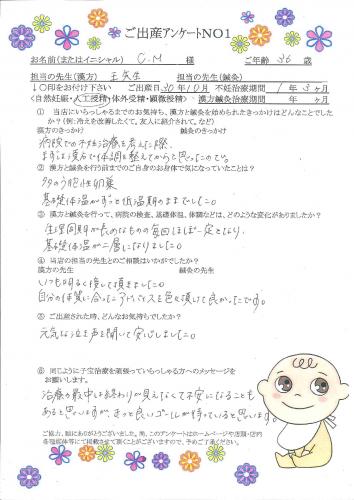 ご出産アンケートNO1
お名前(またはイニシャル) C.M ご年齢 36 歳
担当の先生(漢方) 王先生 担当の先生(鍼灸)
↓〇印をお付け下さい ご出産日 30年10月 不妊治療期間 1年3ヶ月
<自然妊娠・人工授精・体外受精・顕微授精> 漢方鍼灸治療期間 年 ヶ月
① 当店にいらっしゃるまでのきっかけ、漢方と鍼灸を始められたきっかけはどんなことでしたか?(例:冷えを改善したくて、友人に紹介されて。など)
漢方のきっかけ 鍼灸のきっかけ
病院での不妊治療を考えた際、
まずは漢方で体調を整えてからと思ったため
② 漢方と鍼灸を行う前までのご自身のお身体で気になっていたことは?
多のう胞性卵巣
基礎体温がずっと低温期のままでした。
③ 漢方と鍼灸を行って、病院の検査、基礎体温、体調などは、どのような変化がありましたか?
生理周期が長めなものの毎回ほぼ一定となり、
基礎体温が二層になりました。
④ 当店の担当の先生とのご相談はいかがでしたか?
漢方の先生 鍼灸の先生
いつも明るく接して頂きました。
自分の体質に合ったアドバイスを色々頂けて良かったです。
⑤ ご出産された時、どんなお気持ちでしたか?
元気な泣き声を聞いて安心しました。
⑥ 同じように子宝治療を頑張っていらっしゃる方へのメッセージをお願いします。
治療の最中は終わりが見えなくて不安になることも
あると思いますが、きっと良いゴールが待っていると思います。
ご協力、誠にありがとうございました。尚、このアンケートはホームページや店頭・店内
各種媒体等にて掲載させて頂くことがございますので、予めご了承ください。